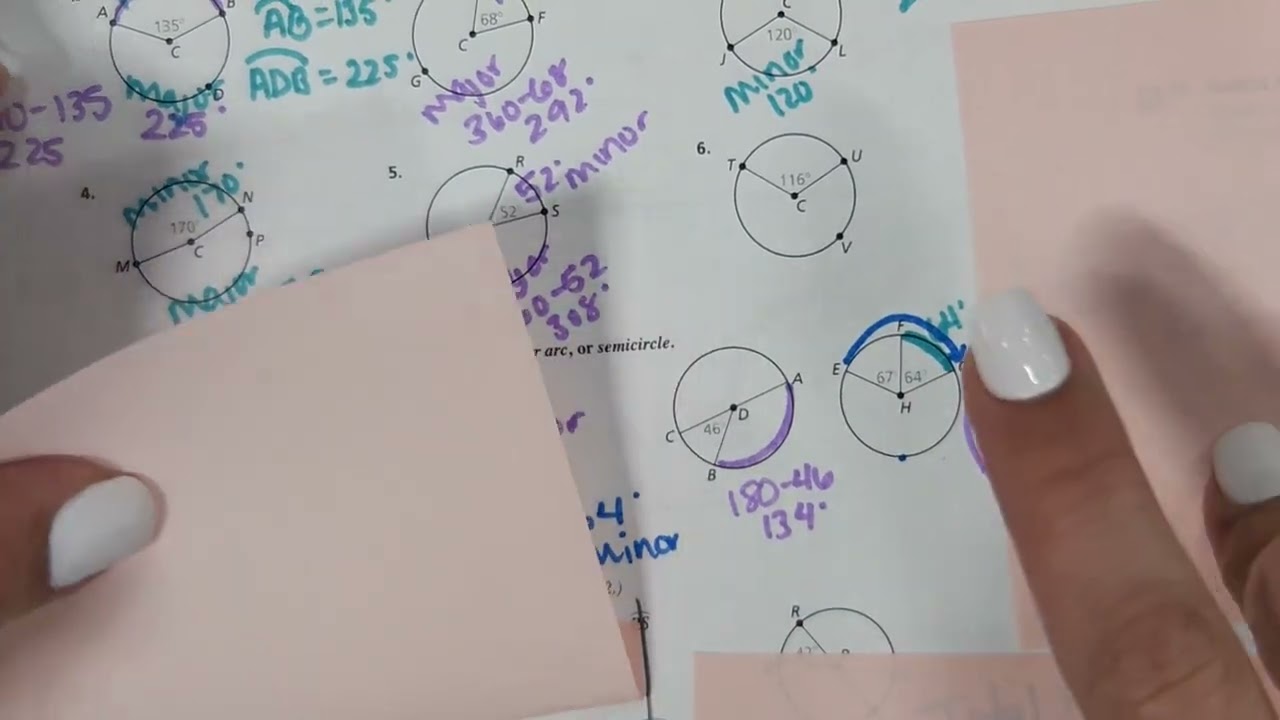 A
B
135°
C
D
AB = 135°
ADB = 225°
Major
225°
0-135
225
68°
C
F
G
Major
360-68
292°
C
120°
J
L
minor
120°
4.
minor
170°
N
170°
C
P
M
Major
5.
R
52° minor
52°
S
308°
6.
T
U
116°
C
V
r arc, or semicircle.
A
D
C
46°
B
180-46
134°
F
64°
E
67°
64°
H
minor
R